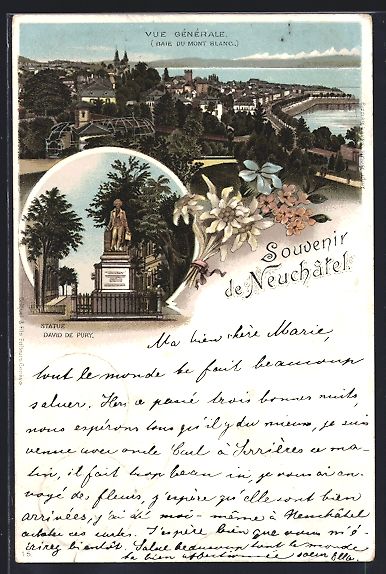 VUE GÉNÉRALE.
(BAIE DU MONT BLANC.)
Souvenir
de Neuchâtel
STATUE
DAVID DE PURY.
Ma bien chère Marie,
tout le monde te fait beaucoup
saluer. a passé trois bonnes nuits,
nous espérons tous qu'il y du mieux, je suis
venue avec oncle à Serrières ce ma-
tin, il fait trop beau ici, je vous ai en-
voyé des fleurs, j'espère qu'elle sont bien
arrivées, j'ai été moi-même à Neuchâtel
acheter ces cartes. J'espère bien que vous m'é-
crirez bientôt. Salue beaucoup tout le monde
ta bien affectionnée sœur Ella.